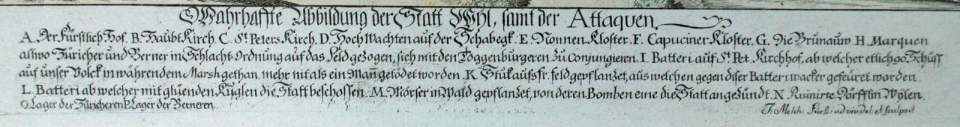 Wahrhaffte Abbildung der Statt Wyl, samt der Attaquen
A. Der Fürstlich Hof. B. Haubt Kirch. C. St. Peters Kirch. D. Hoch Wachten auf der Schabegk. E. Nonnen Kloster. F. Capuciner Kloster. G. Die Brünaüw. H. Marquen
alhwo Züricher und Berner in Schlacht Ordnung auf das Feld gezogen, sich mit den Toggenbürgeren zu Conjungieren. I. Batteri auf St. Pet. Kirchhof, ab welcher etlich 90 Schüss
auf unser Volck in währendem Marsch gethan, mehr nit als ein Mañ getödet worden. K. Stuk auf s fr. feld gepflanzet, aus welchen gegen diser Batteri wacker gefeüret worden.
L. Batteri ab welcher mit glüenden Küglen die Statt beschossen. M. Mörser in Wald gepflanzet, von deren Bomben eine die Statt angezündt. N. Ruinirte Dörfflin Wölen.
O. Lager der Züricheren P. Lager der Berneren.
J. Melch. Füeßli ad viv. del. et sculpsit